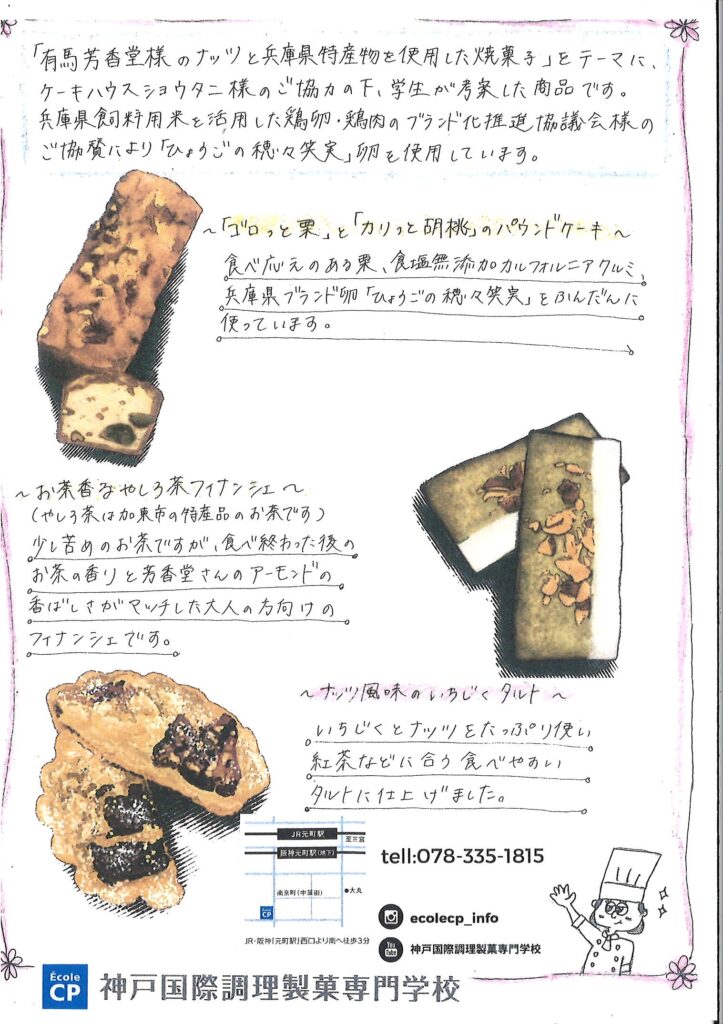 「有馬芳香堂様のナッツと兵庫県特産物を使用した焼菓子」をテーマに、
ケーキハウスショウタニ様のご協力の下、学生が考案した商品です。
兵庫県飼料用米を活用した鶏卵・鶏肉のブランド化推進協議会様の
ご協賛により「ひょうごの穂々笑実」卵を使用しています。
～「ゴロっと栗」と「カリっと胡桃」のパウンドケーキ～
食べ応えのある栗、食塩無添加カルフォルニアクルミ、
兵庫県ブランド卵「ひょうごの穂々笑実」をふんだんに
使っています。
～お茶香るやしろ茶フィナンシェ～
(やしろ茶は加東市の特産品のお茶です)
少し苦めのお茶ですが、食べ終わった後の
お茶の香りと芳香堂さんのアーモンドの
香ばしさがマッチした大人の方向けの
フィナンシェです。
～ナッツ風味のいちじくタルト～
いちじくとナッツをたっぷり使い
紅茶などに合う食べやすい
タルトに仕上げました。
JR元町駅
至三宮
阪神元町駅(地下)
南京町(中華街)
●大丸
École CP
JR・阪神「元町駅」西口より南へ徒歩3分
tell:078-335-1815
ecolecp_info
You Tube 神戸国際調理製菓専門学校
École
CP 神戸国際調理製菓専門学校